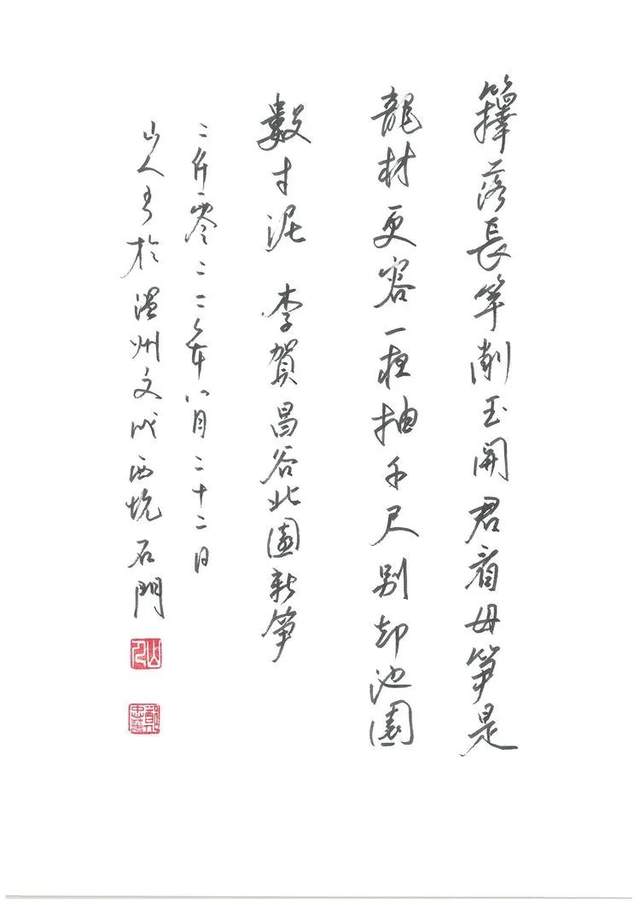 籜落長竿削玉開君看母笋是
龍材更容一夜抽千尺別却池園
數寸泥 李賀昌谷北園新笋
二仟零二年八月二十二日
山人書於温州文成西坑石門
山人